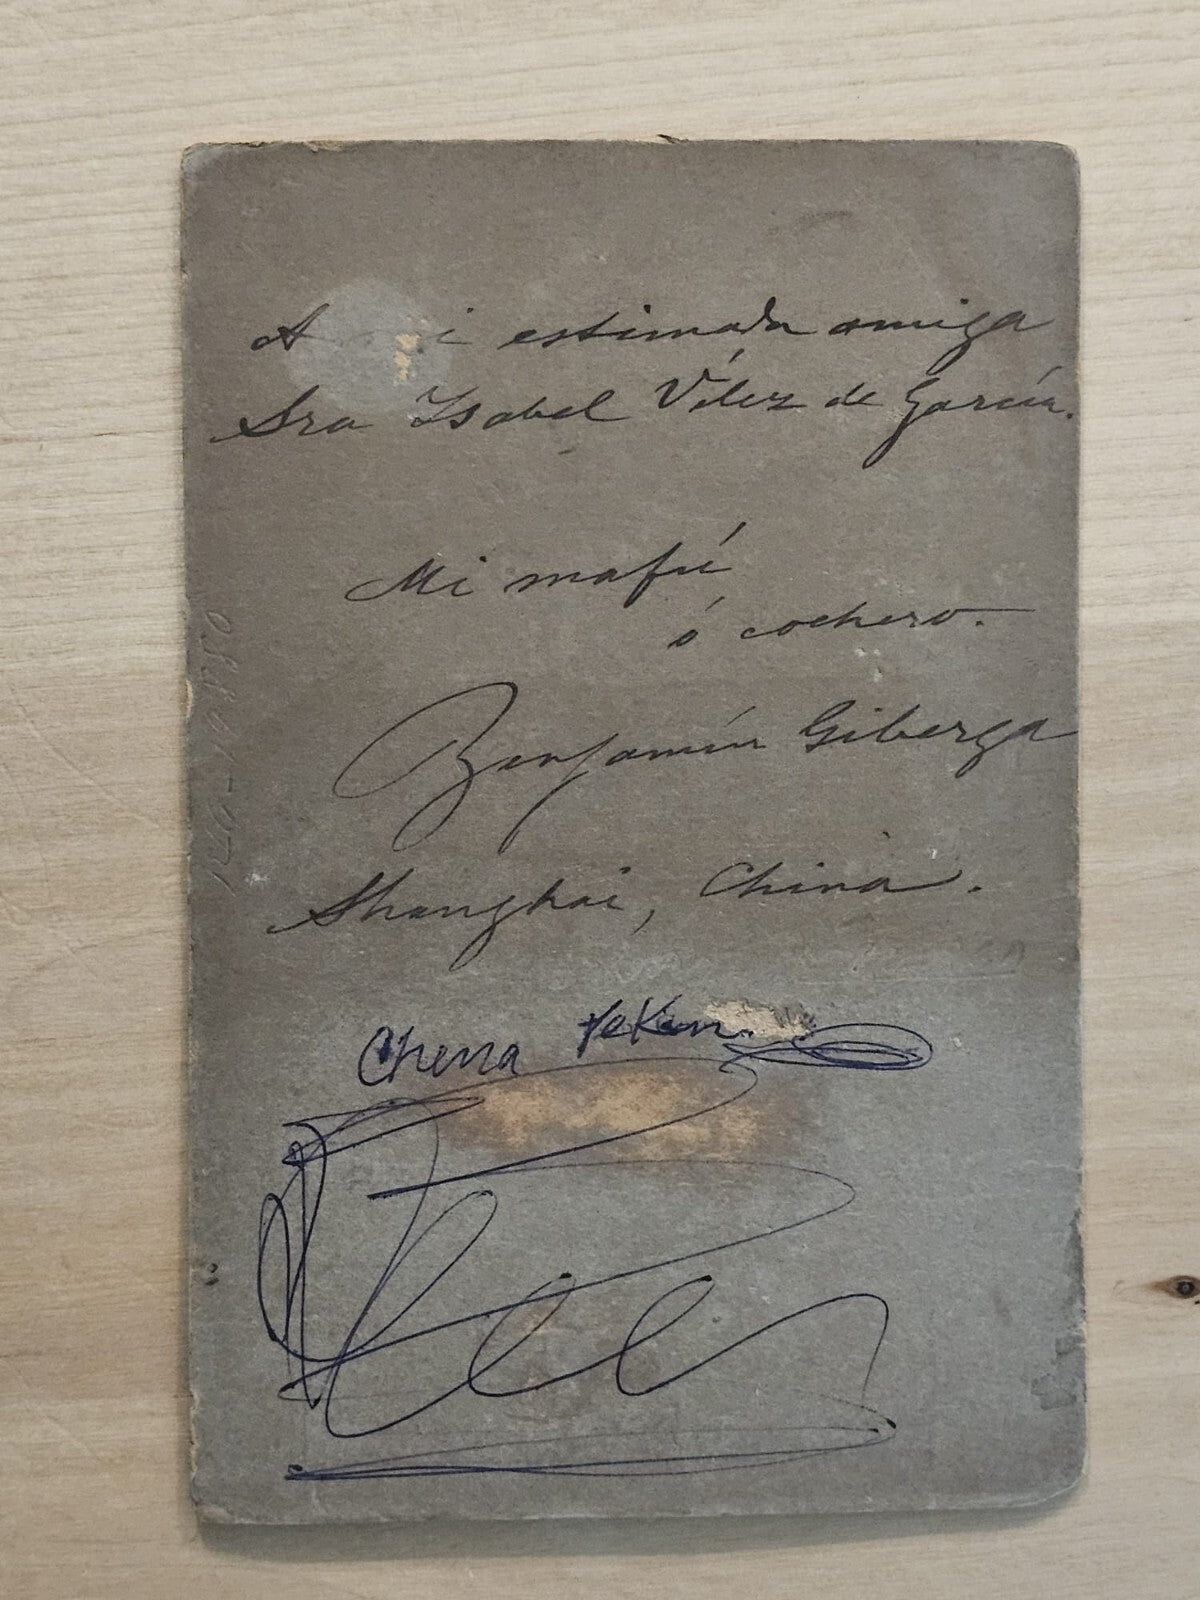 A mi estimada amiga
Sra Isabel Vélez de García.
Mi mafú
ó cochero.
Benjamín Giberga
Shanghai, China.
Chena Pekin.